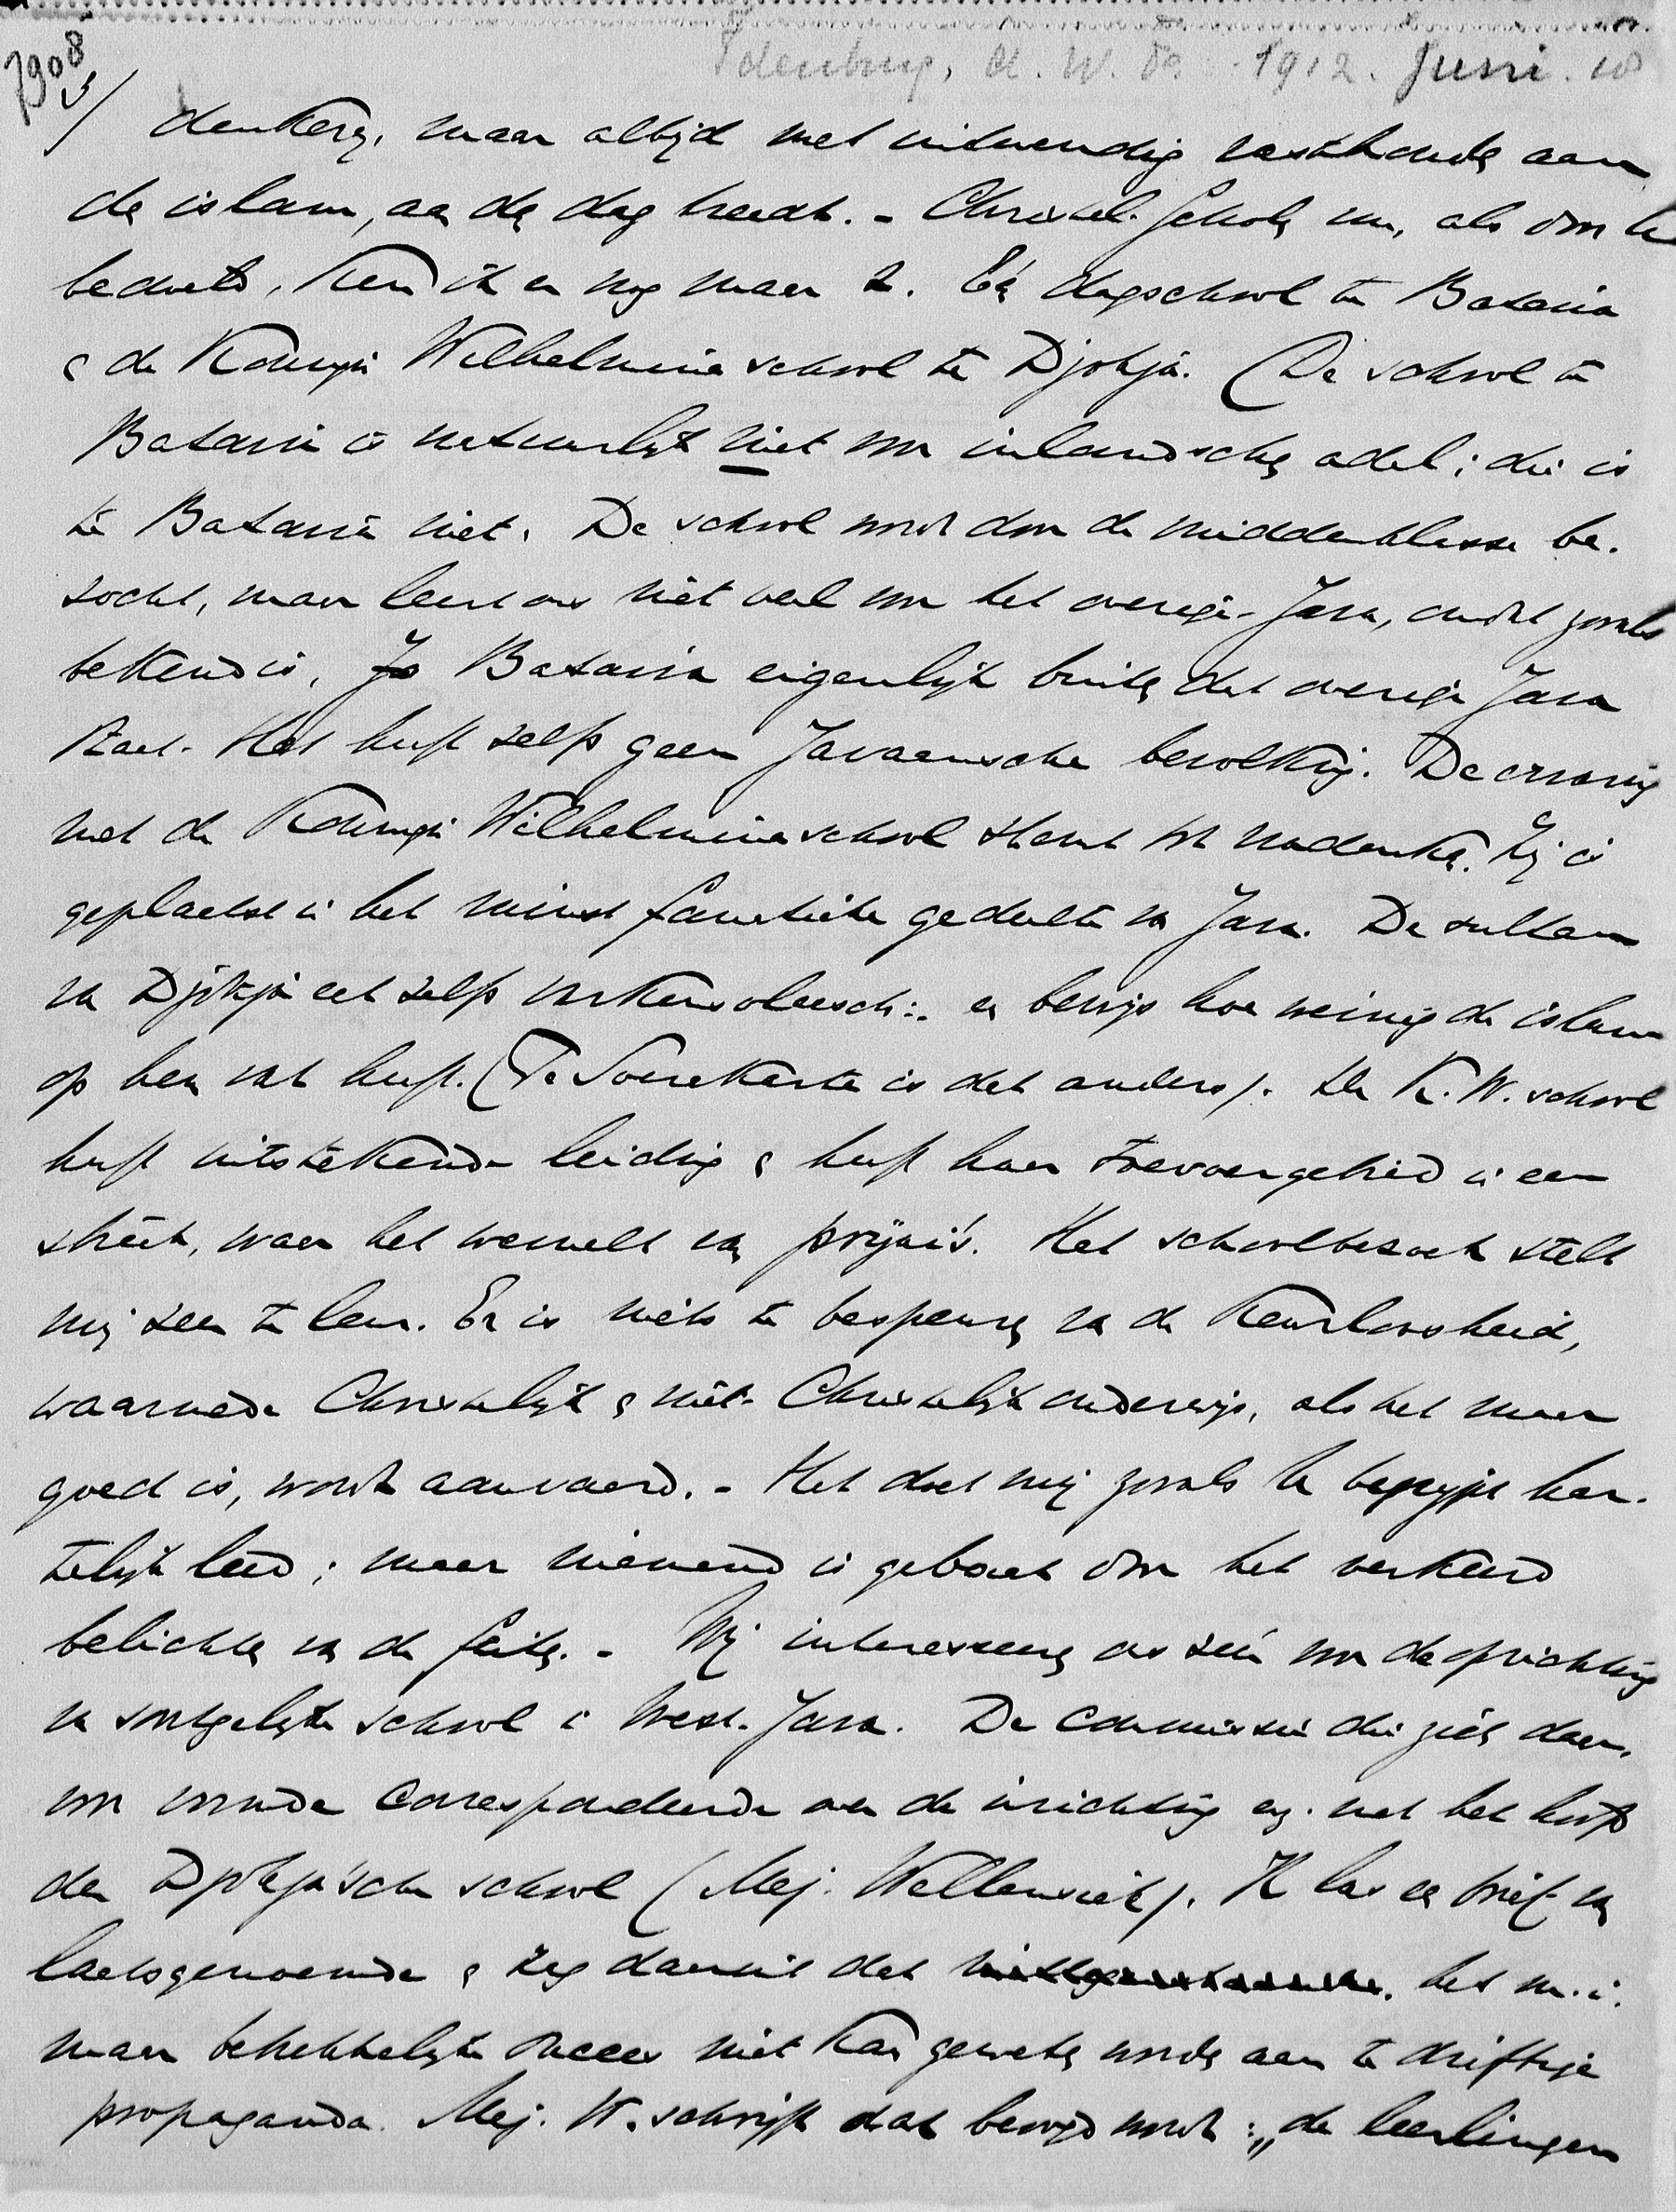 7908
5/
Idenburg, A. W. F. 1912. Juni. 18
denken, maar altijd met uitwendig vasthoude aan
de islam, aan de dag treedt. - Christel. Schole nu, als door U
bedoeld, ken ik er nog maar 2. Eén dagschool te Batavia
& de Koningin Wilhelmina school te Djokja. (De school te
Batavia is natuurlijk niet voor inlandsche adel; die is
te Batavia niet. De school wordt door de middenklasse be-
zocht, maar leert ons niet veel voor het overige Java, omdat zooals
bekend is, Batavia eigenlijk buiten dat overige Java
staat. Het heeft zelfs geen Javaansche bevolking. De ervaring
met de Koningin Wilhelmina school stemt tot nadenken. Zij is
geplaatst in het minst fanatieke gedeelte van Java. De sultan
van Djokja eet zelfs varkensvleesch: een bewijs hoe weinig de islam
op hem vat heeft. (Te Soerakarta is dat anders). De K. W. school
heeft uitstekende leiding & heeft haar toevoergebied in een
streek, waar het wemelt van prijaji's. Het schoolbezoek stelt
mij zeer te leur. Er is niets te bespeuren van de keurloosheid,
waarmede Christelijk & niet-Christelijk onderwijs, als het maar
goed is, wordt aanvaard. - Het doet mij zooals U begrijpt har-
telijk leed; maar niemand is gebaat door het verkeerd
belichten van de feiten. - Wij interesseeren ons zéér voor de oprichting
van soortgelijke school in West-Java. De commissie die zich daar-
voor vormde correspondeerde over de inrichting enz. met het hoofd
der Djokja'sche school (Mej. Wellensiek). Ik las een brief van
laatstgenoemde & zag daaruit dat het m.i.
maar betrekkelijk succes niet kan geweten worden aan te driftige
propaganda. Mej. W. schrijft dat bevrijd wordt: "de leerlingen